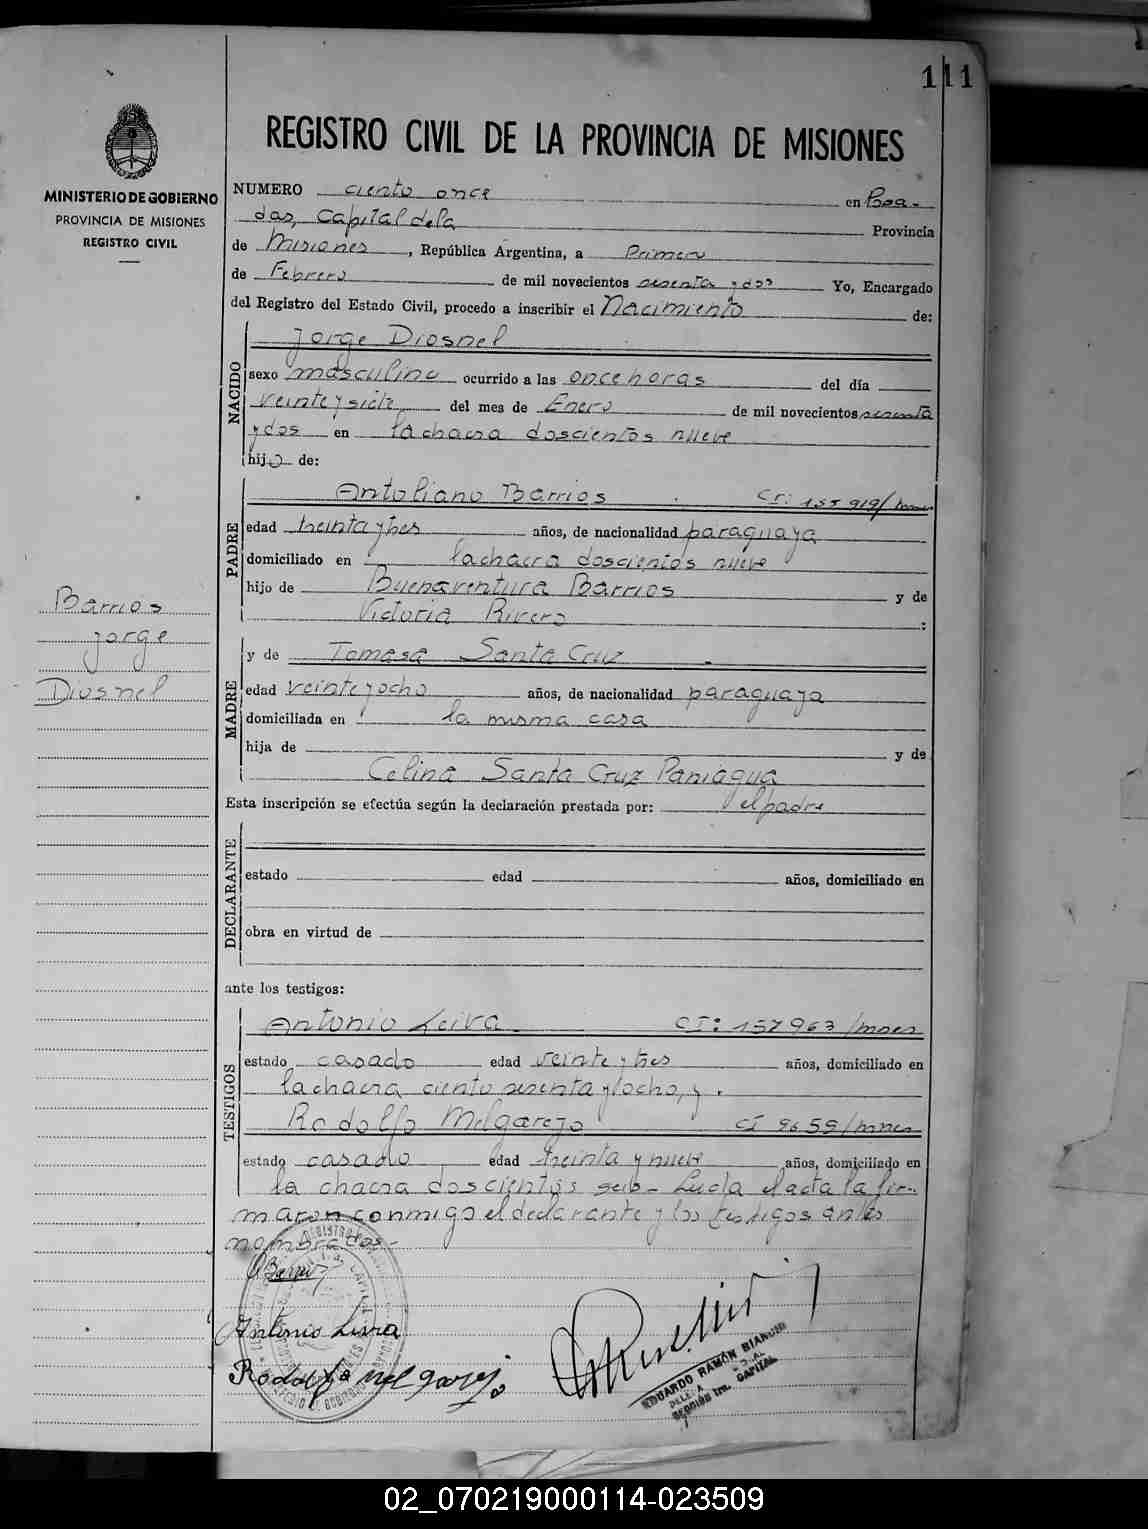 111
REGISTRO CIVIL DE LA PROVINCIA DE MISIONES
MINISTERIO DE GOBIERNO
PROVINCIA DE MISIONES
REGISTRO CIVIL
NUMERO ciento once en Posa-
das, Capital de la Provincia
de Misiones, República Argentina, a Primero
de Febrero de mil novecientos sesenta y dos Yo, Encargado
del Registro del Estado Civil, procedo a inscribir el Nacimiento de:
NACIDO
Jorge Diosnel
sexo masculino ocurrido a las once horas del día
veinte y siete del mes de Enero de mil novecientos sesenta
y dos en la chacra doscientos nueve
hijo de:
PADRE
Antoliano Barrios CI: 155919/mnes
edad treinta y tres años, de nacionalidad paraguaya
domiciliado en la chacra doscientos nueve
hijo de Buenaventura Barrios y de
Victoria Rivero :
MADRE
y de Tomasa Santa Cruz
edad veinte y ocho años, de nacionalidad paraguaya
domiciliada en la misma casa
hija de y de
Celina Santa Cruz Paniagua
Esta inscripción se efectúa según la declaración prestada por: el padre
DECLARANTE
estado edad años, domiciliado en
obra en virtud de
ante los testigos:
TESTIGOS
Antonio Leiva CI: 157963/mnes
estado casado edad veinte y tres años, domiciliado en
la chacra ciento sesenta y ocho, y
Rodolfo Melgarejo CI 9659/mnes
estado casado edad treinta y nueve años, domiciliado en
la chacra doscientos seis - Leída el acta la fir-
maron conmigo el declarante y los testigos antes
nombrados.-
Barrios
Jorge
Diosnel
Antonio Leiva
Rodolfo melgarejo
EDUARDO RAMÓN BIANCHI
CAPITAL
02_070219000114-023509